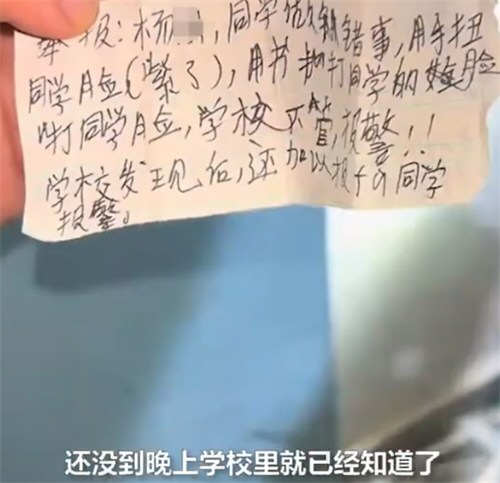 举报：杨，同学做错事，用手扭
同学脸（紫了），用书打同学的脸
打同学脸，学校不管，报警！！
学校发现后，还加以报 同学
报警。
还没到晚上学校里就已经知道了